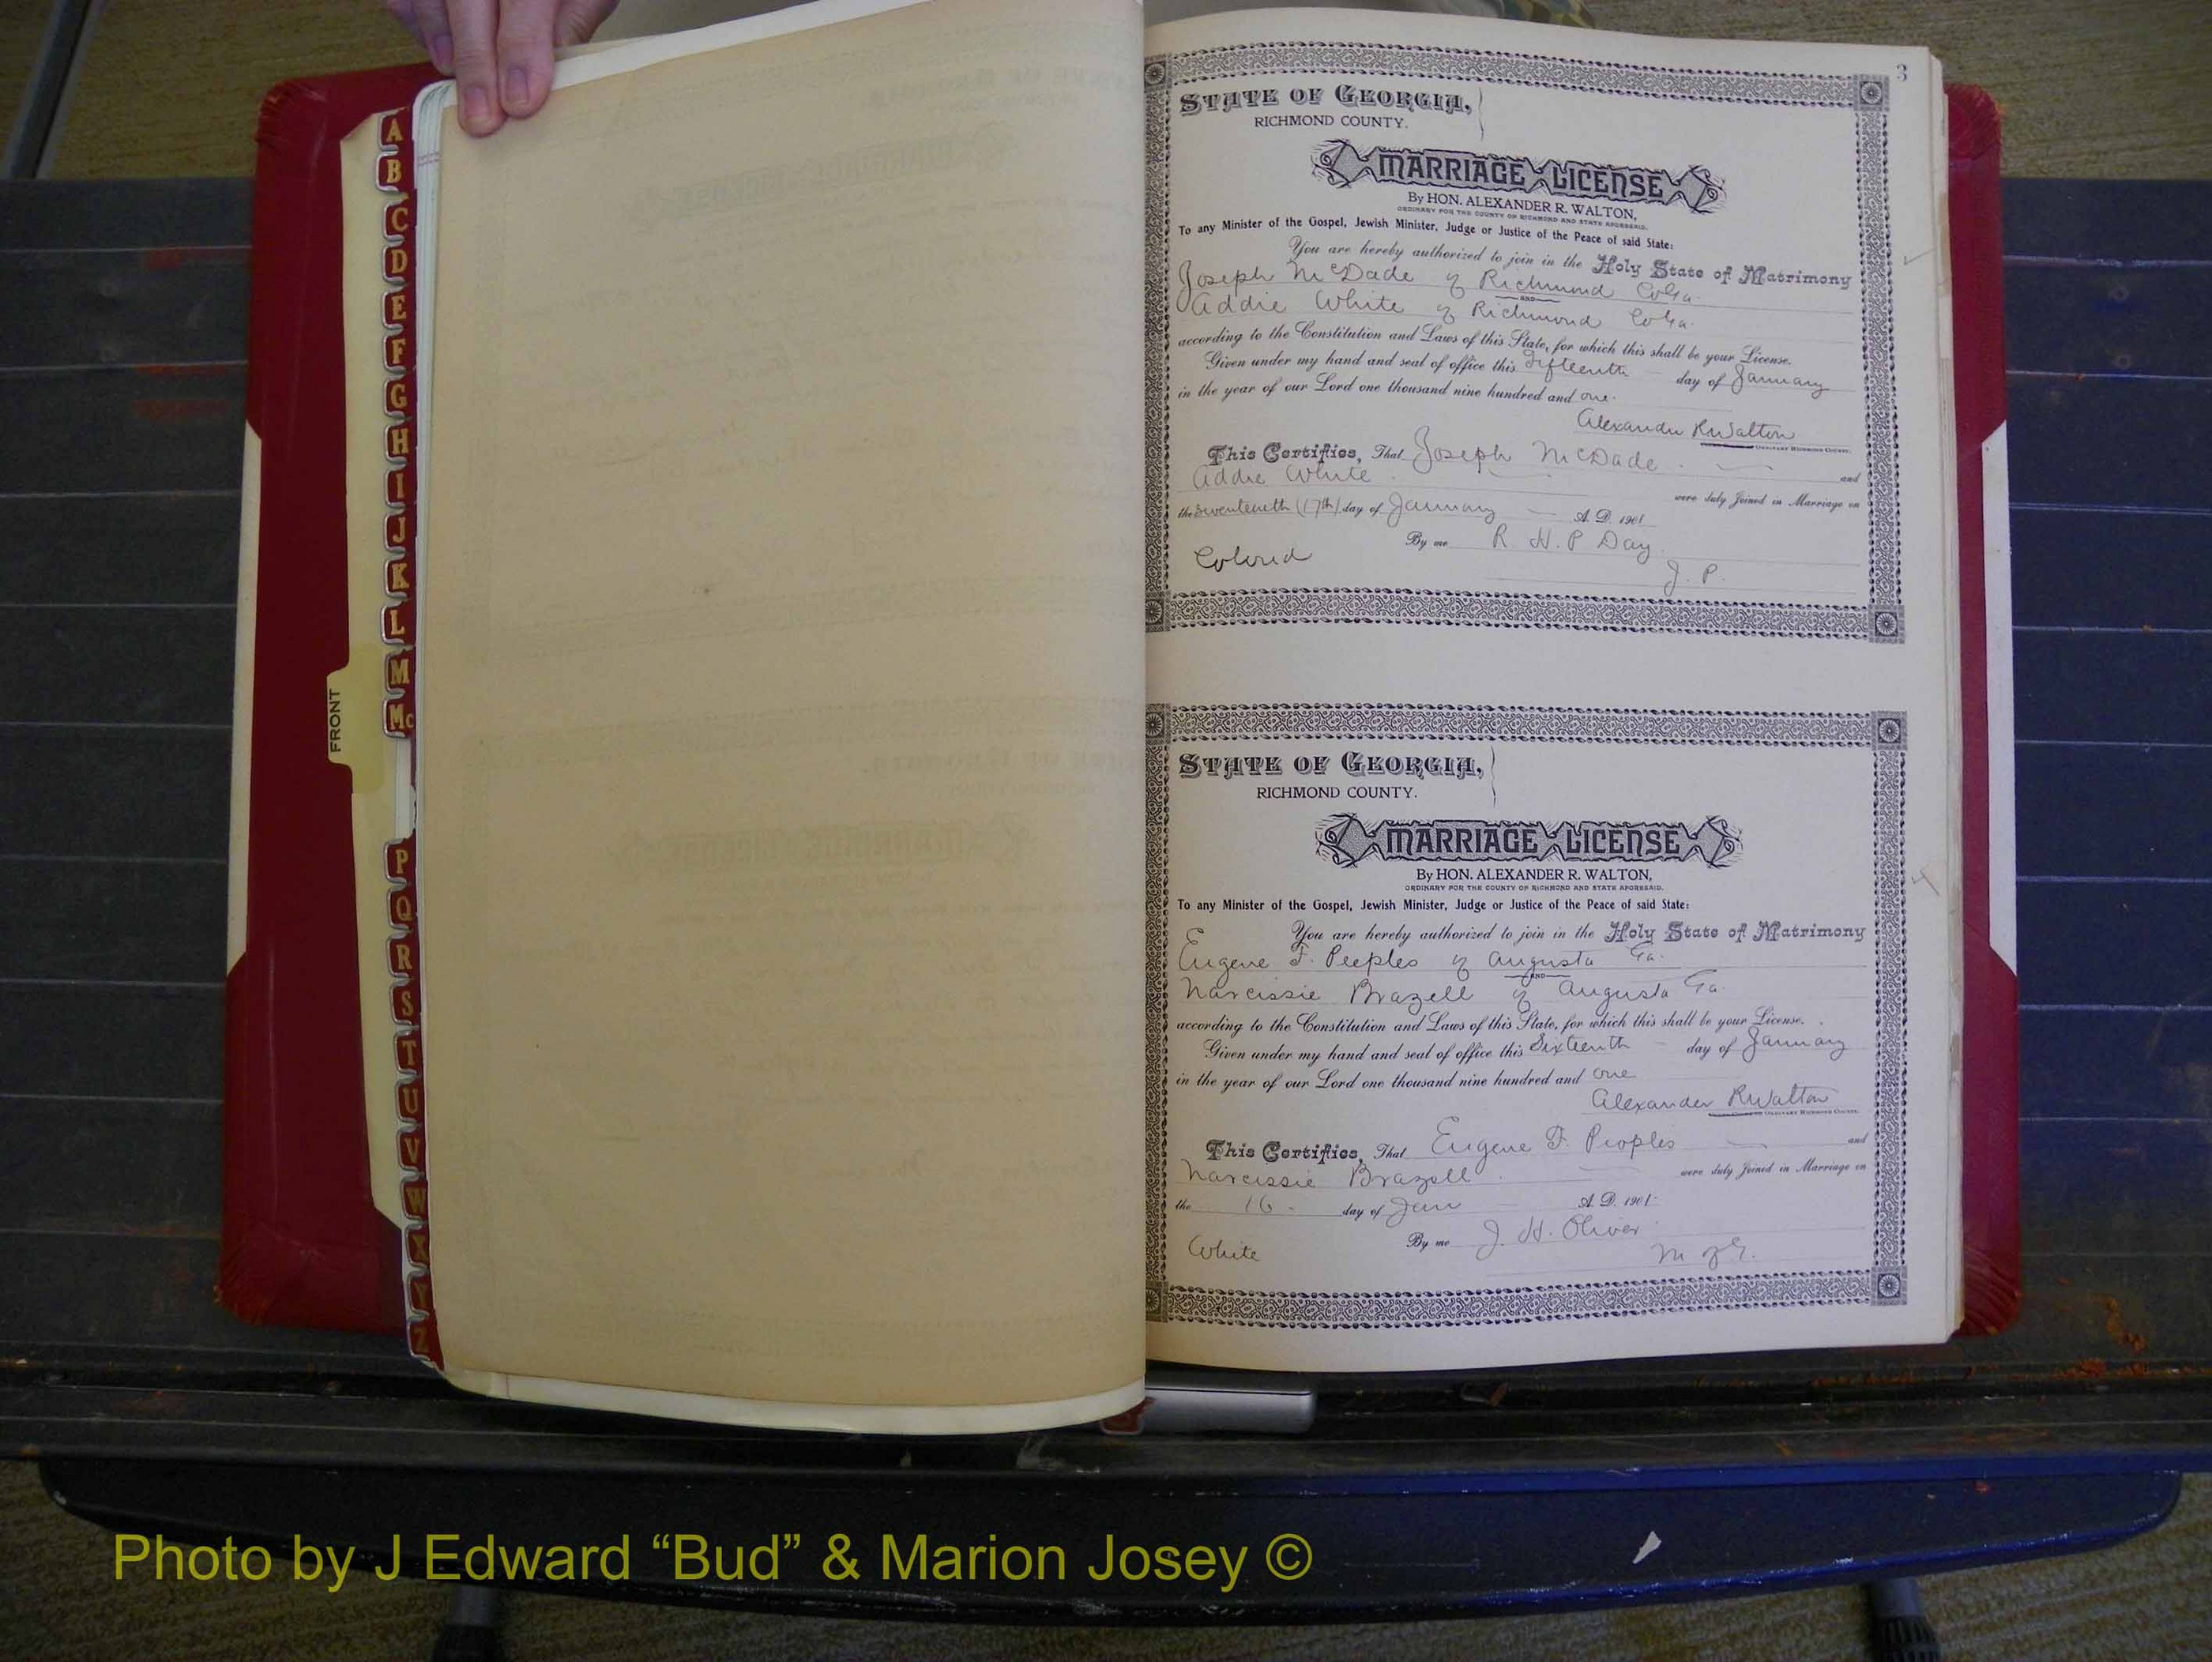 A
B
C
D
E
F
G
H
I
J
K
L
M
Mc
P
Q
R
S
T
U
V
W
X
Y
Z
FRONT
3
STATE OF GEORGIA,
RICHMOND COUNTY.
MARRIAGE LICENSE
By HON. ALEXANDER R. WALTON,
ORDINARY FOR THE COUNTY OF RICHMOND AND STATE AFORESAID.
To any Minister of the Gospel, Jewish Minister, Judge or Justice of the Peace of said State:
You are hereby authorized to join in the Holy State of Matrimony
Joseph McDade of Richmond Co Ga.
AND
Addie White of Richmond Co Ga.
according to the Constitution and Laws of this State, for which this shall be your License.
Given under my hand and seal of office this Fifteenth day of January
in the year of our Lord one thousand nine hundred and one.
Alexander R Walton
ORDINARY RICHMOND COUNTY.
This Certifies, That Joseph McDade and
Addie White were duly Joined in Marriage on
the Seventeenth (17th) day of January A. D. 1901
By me R. H. P Day
Colored
J. P.
STATE OF GEORGIA,
RICHMOND COUNTY.
MARRIAGE LICENSE
By HON. ALEXANDER R. WALTON,
ORDINARY FOR THE COUNTY OF RICHMOND AND STATE AFORESAID.
To any Minister of the Gospel, Jewish Minister, Judge or Justice of the Peace of said State:
You are hereby authorized to join in the Holy State of Matrimony
Eugene F. Peeples of Augusta Ga.
AND
Narcissie Brazell of Augusta Ga.
according to the Constitution and Laws of this State, for which this shall be your License.
Given under my hand and seal of office this Sixteenth day of January
in the year of our Lord one thousand nine hundred and one
Alexander R Walton
ORDINARY RICHMOND COUNTY.
This Certifies, That Eugene F. Peoples and
Narcissie Brazell were duly Joined in Marriage on
the 16 day of Jan A. D. 1901
By me J. H. Oliver
White
M of G.
Photo by J Edward “Bud” & Marion Josey ©